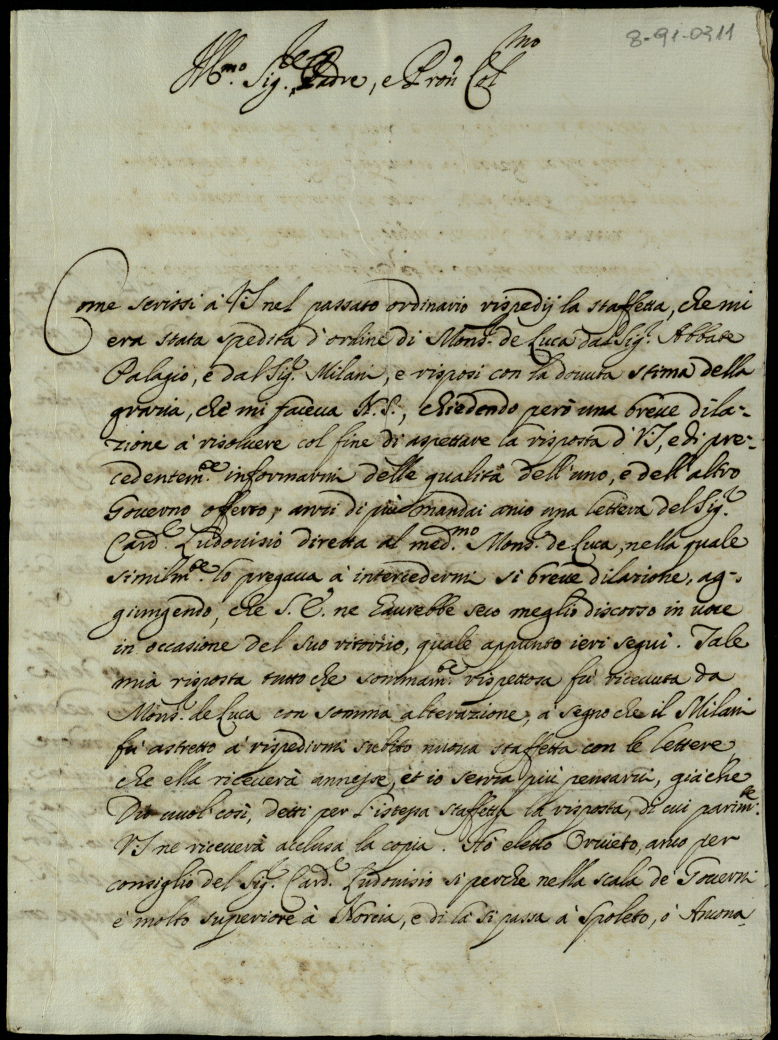 8-91-0311
Ill.mo Sig.re Padre, e Pron Col.mo
Come scrissi à VS nel passato ordinario rispedij la staffetta, che mi
era stata spedita d'ordine di Mons.r de Luca dal Sig.r Abbate
Palagio, e dal Sig.r Milani, e risposi con la dovuta stima della
grazia, che mi faceva N.S., chiedendo però una breve dila-
zione à risolvere col fine di aspettare la risposta d'VS, e di pre-
cedentem.te informarmi delle qualità dell'uno, e dell'altro
Governo offerto, anzi di più mandai anco una lettera del Sig.r
Card.e Ludovisio diretta al med.mo Mons.r de Luca, nella quale
similm.te lo pregava à intercedermi si breve dilazione, ag-
giungendo, che S.E. ne haurebbe seco meglio discorso in voce
in occasione del suo ritorno, quale appunto ieri seguì. Tale
mia risposta tutto che sommam.te rispettosa fù ricevuta da
Mons.r de Luca con somma alterazione, à segno che il Milani
fù astretto à rispedirmi subito nuova staffetta con le lettere
che ella riceverà annesse, et io senza più pensarvi, già che
Dio vuol così, detti per l'istessa staffetta la risposta, di cui parim.te
VS ne riceverà acclusa la copia. Hò eletto Orvieto, anco per
consiglio del Sig.r Card.e Ludovisio si perche nella scala de Governi
è molto superiore à Norcia, e di là si passa à Spoleto, ò Ancona